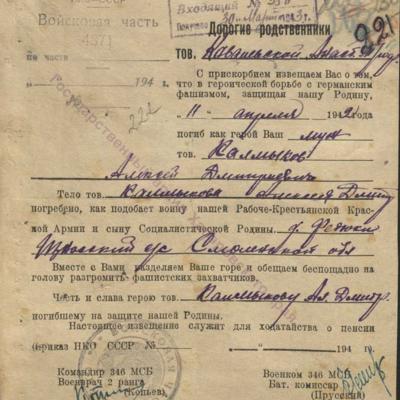 НКО-СССР
Войсковая часть
4371
по части
194 г.
222
Входящий №
30 марта
Дорогие родственники
221
тов.
С прискорбием извещаем Вас о том,
что в героической борьбе с германским
фашизмом, защищая нашу Родину,
„11" апреля 1942 года
погиб как герой Ваш муж
тов. Калмыков
Алексей Дмитриевич
Тело тов. Калмыкова Алексея Дмитр
погребено, как подобает воину нашей Рабоче-Крестьянской Крас-
ной Армии и сыну Социалистической Родины д. Федюки
Смоленской обл
Вместе с Вами разделяем Ваше горе и обещаем беспощадно на
голову разгромить фашистских захватчиков.
Честь и слава герою тов. Калмыкову Ал. Дмитр.
погибшему на защите нашей Родины.
Настоящее извещение служит для ходатайства о пенсии
(приказ НКО СССР № 194 г.
Командир 346 МСБ
Военврач 2 ранга
(Копьев)
Военком 346 МСБ
Бат. комиссар
(Прусский)